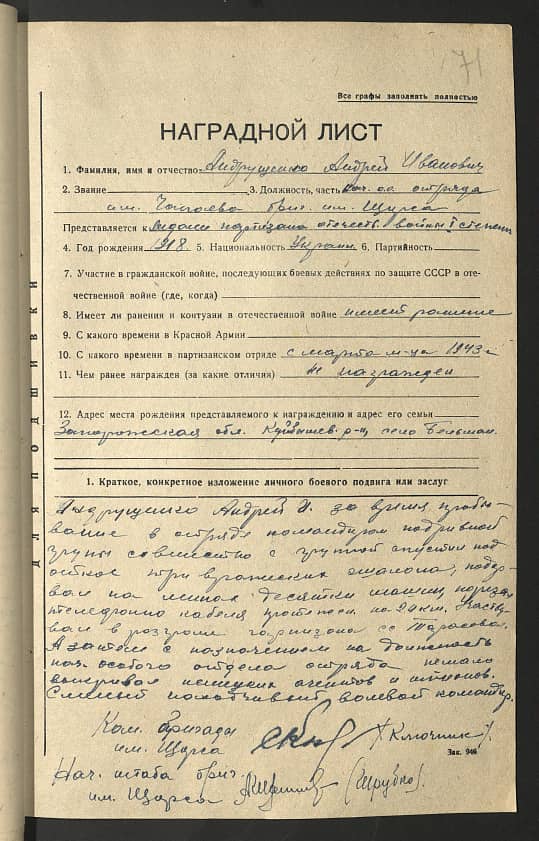 71
Все графы заполнять полностью
НАГРАДНОЙ ЛИСТ
1. Фамилия, имя и отчество Андрущенко Андрей Иванович
2. Звание 3. Должность, часть Нач. о.о. отряда
им. Чапаева бриг. им. Щорса
Представляется к медали партизана отечеств. войны I степени
4. Год рождения 1918. 5. Национальность Украин 6. Партийность
7. Участие в гражданской войне, последующих боевых действиях по защите СССР в оте-
чественной войне (где, когда)
8. Имеет ли ранения и контузии в отечественной войне имеет ранение
9. С какого времени в Красной Армии
10. С какого времени в партизанском отряде с марта м-ца 1943 г
11. Чем ранее награжден (за какие отличия) не награжден
12. Адрес места рождения представляемого к награждению и адрес его семьи
Запорожская обл. Куйбышев. р-н, село Бельман.
1. Краткое, конкретное изложение личного боевого подвига или заслуг
Андрущенко Андрей И. за время пребы-
вание в отряде командиром подрывной
групы совместно с групой спустил под
откос три вражеских эшелона, подор-
вал на минах десятки машин, порезал
телефонно кабеля протяжен на 24 км. Участву-
вал в розгроме гарнизона с. Тарасовка.
А затем с назначением на должность
нач. особого отдела отряда немало
выкривал немецких агентов и шпионов.
Смелый находчивый волевой командир.
Ком. бригады
им. Щорса (Ключник).
Зак. 946
Нач. штаба бриг.
им. Щорса (Шрубко).
ДЛЯ ПОДШИВКИ